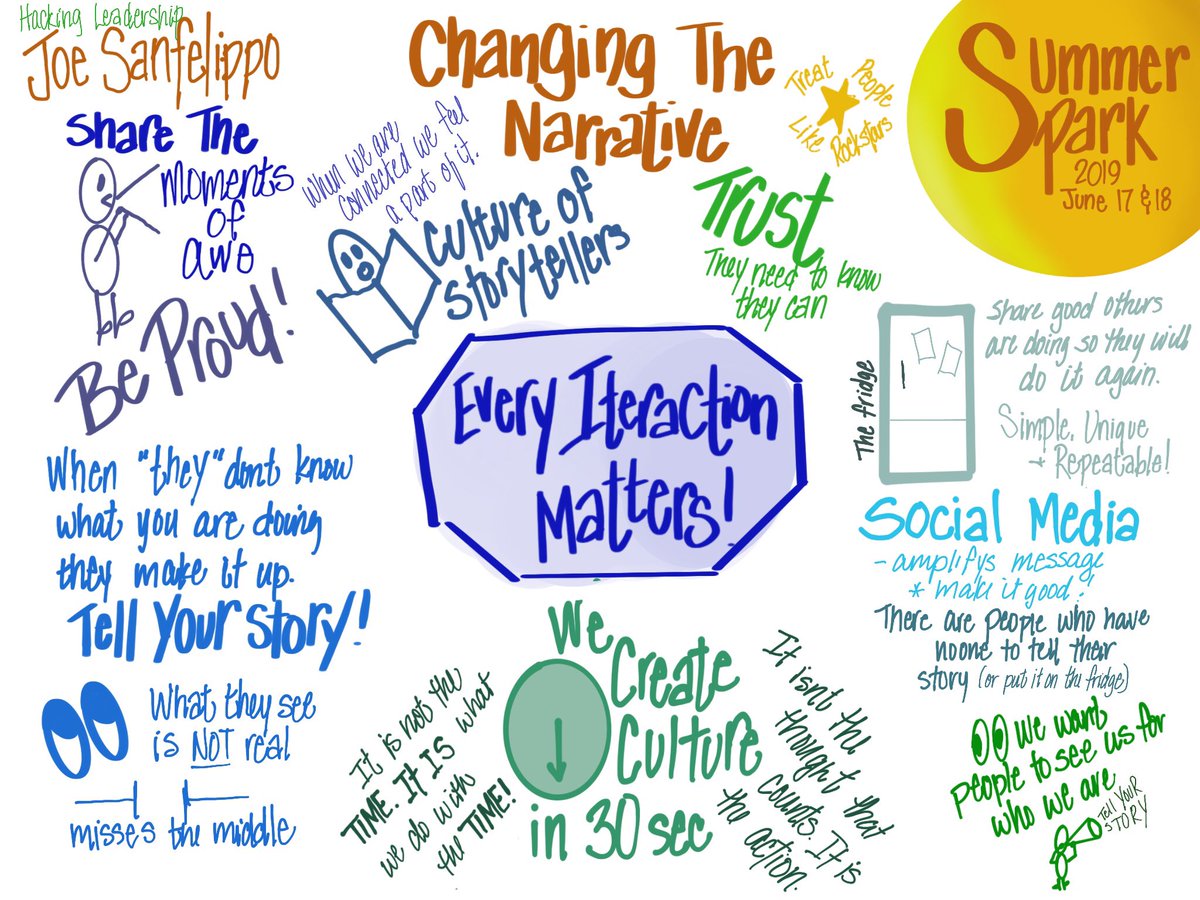 Hacking Leadership
Joe Sanfelippo
Changing The
Narrative
Treat People
Like Rockstars
Summer
Spark
2019
June 17 & 18
Share The
Moments
of
awe
Be Proud!
When we are
connected we feel
a part of it.
Culture of
storytellers
Trust
They need to know
they can
The fridge
Share good others
are doing so they will
do it again.
Simple, Unique
+ Repeatable!
Every Iteraction
Matters!
When "they" dont know
what you are doing
they make it up.
Tell Your Story!
What they see
is NOT real
misses the middle
It is not the
TIME. It IS what
we do with
the TIME!
We
Create
Culture
in 30 sec
It isnt the
thought that
counts. It is
the action.
Social Media
- amplifys message
* make it good!
There are people who have
noone to tell their
story (or put it on the fridge)
We want
people to see us for
who we are
Tell Your
Story